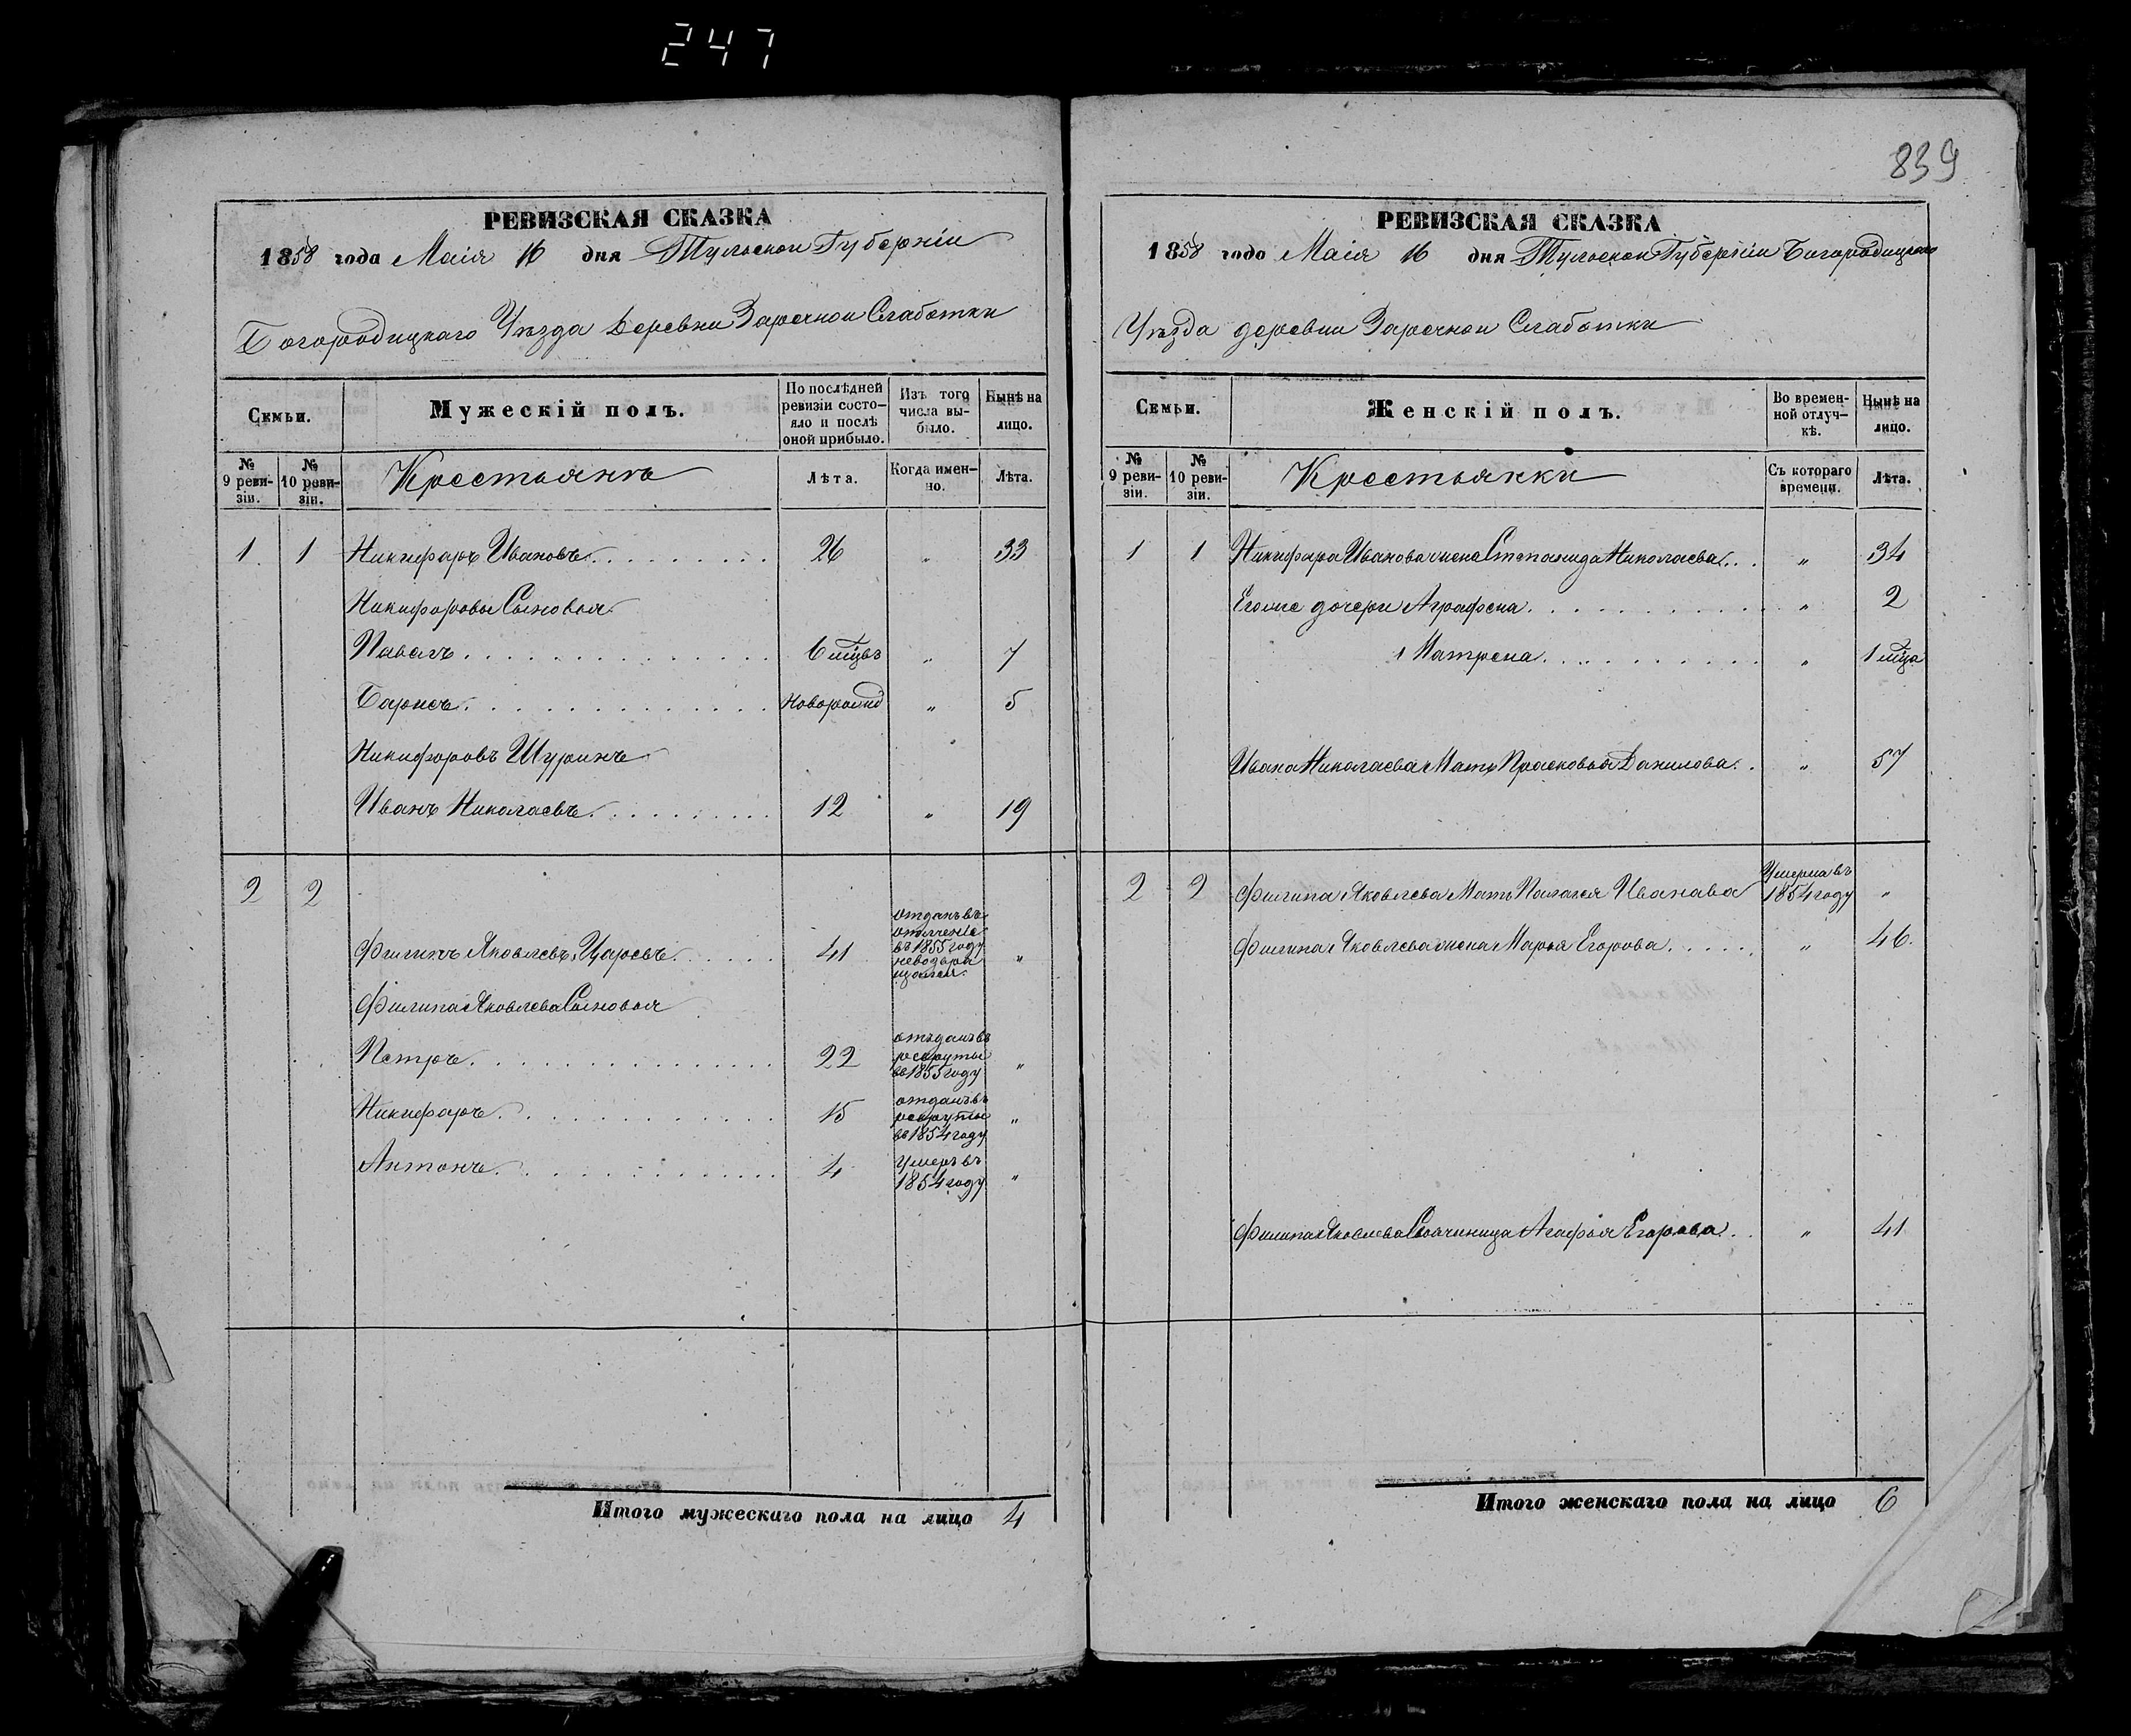 247
839
РЕВИЗСКАЯ СКАЗКА
1858 года Маія 16 дня Тульской Губерніи
Богородицкаго Уѣзда Деревни Заречной Слаботки
Семьи.
Мужескій полъ.
По послѣдней ревизіи состояло и послѣ оной прибыло.
Изъ того числа выбыло.
Нынѣ на лицо.
№ 9 ревизіи.
№ 10 ревизіи.
Крестьянъ
Лѣта.
Когда именно.
Лѣта.
1 1 Никифаръ Ивановъ 26 " 33
Никифоровы Сыновья
Павелъ 6 мцвъ " 7
Барисъ новорожд " 5
Никифоровъ Шуринъ
Иванъ Николаевъ 12 " 19
2 2
Филипъ Яковлевъ Царевъ 41 отданъ въ ополченіе въ 1855 году "
Филипа Яковлева Сыновья
Петръ 22 отъданъ въ рекруты въ 1855 году "
Никифаръ 15 отданъ въ рекруты въ 1854 году "
Антонъ 4 умеръ въ 1854 году "
Итого мужескаго пола на лицо 4
РЕВИЗСКАЯ СКАЗКА
1858 годо Маія 16 дня Тульской Губерніи Богородицкаго
Уѣзда деревни Заречной Слаботки
Семьи.
Женскій полъ.
Во временной отлучкѣ.
Нынѣ на лицо.
№ 9 ревизіи.
№ 10 ревизіи.
Крестьянки
Съ котораго времени.
Лѣта.
1 1 Никифара Иванова жена Степанида Николаева " 34
Егоже дочери Аграфена " 2
Матрена " 1 мца
Ивана Николаева Мать Прасковья Данилова " 57
2 2 Филипа Яковлева Мать Палагея Иванава Умерла въ 1854 году "
Филипа Яковлева жена Марья Егорова " 46.
Филипа Яковлева Своячиница Агафья Егорова " 41
Итого женскаго пола на лицо 6